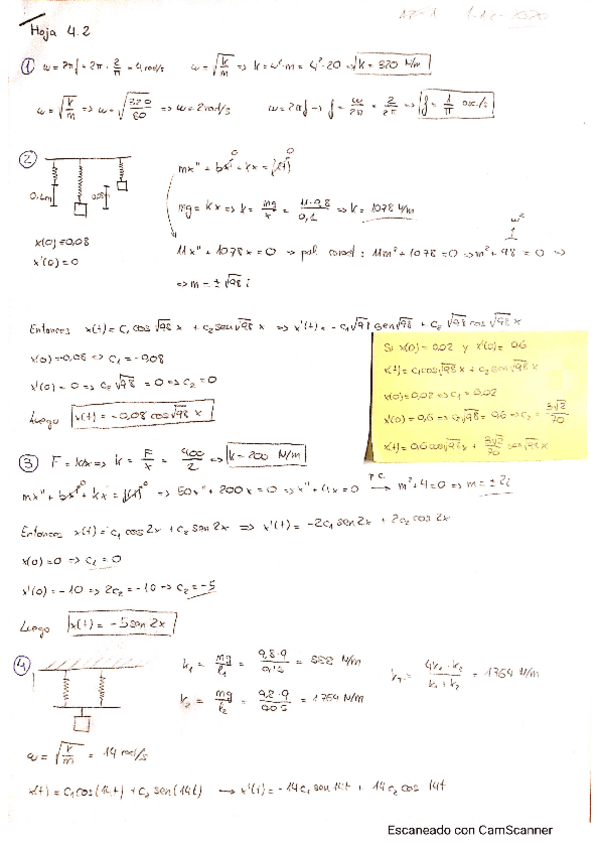 Hoja 4.2
① ω = 2πf = 2π · 2/π = 4 rad/s ω = √(k/m) => k = ω²·m = 4²·20 => k = 320 N/m
ω = √(k/m) => ω = √(320/80) => ω = 2 rad/s ω = 2πf → f = ω/2π = 2/2π => f = 1/π osc/s
② mx'' + bx' + kx = f(t)
0 0
0,1m 0,08m
mg = kx => k = mg/x = 11·9,8/0,1 => k = 1078 N/m
x(0) = 0,08
x'(0) = 0
11x'' + 1078x = 0 => pol. caract: 11m² + 1078 = 0 => m² + 98 = 0 =>
ω²
=> m = ±√98 i
Entonces x(t) = c₁ cos √98 x + c₂ sen √98 x => x'(t) = -c₁√98 sen √98 + c₂ √98 cos √98 x
x(0) = -0,08 => c₁ = -0,08
x'(0) = 0 => c₂ √98 = 0 => c₂ = 0
Luego x(t) = -0,08 cos √98 x
Si x(0) = 0,02 y x'(0) = 0,6
x(t) = c₁ cos √98 x + c₂ sen √98 x
x(0) = 0,02 => c₁ = 0,02
x'(0) = 0,6 => c₂ √98 = 0,6 => c₂ = 3√2/70
x(t) = 0,6 cos √98 x + 3√2/70 sen √98 x
③ F = kx => k = F/x = 400/2 => k = 200 N/m
mx'' + bx' + kx = f(t) => 50x'' + 200x = 0 => x'' + 4x = 0 → p.c. m² + 4 = 0 => m = ±2i
Entonces x(t) = c₁ cos 2x + c₂ sen 2x => x'(t) = -2c₁ sen 2x + 2c₂ cos 2x
x(0) = 0 => c₁ = 0
x'(0) = -10 => 2c₂ = -10 => c₂ = -5
Luego x(t) = -5 sen 2x
④ k₁ = mg/l₁ = 9,8·9/0,15 = 588 N/m
k₂ = mg/l₂ = 9,8·9/0,05 = 1764 N/m
= 4k₁·k₂/(k₁+k₂) = 1764 N/m
ω = √(k/m) = 14 rad/s
x(t) = c₁ cos(14t) + c₂ sen(14t) → x'(t) = -14c₁ sen 14t + 14c₂ cos 14t
Escaneado con CamScanner